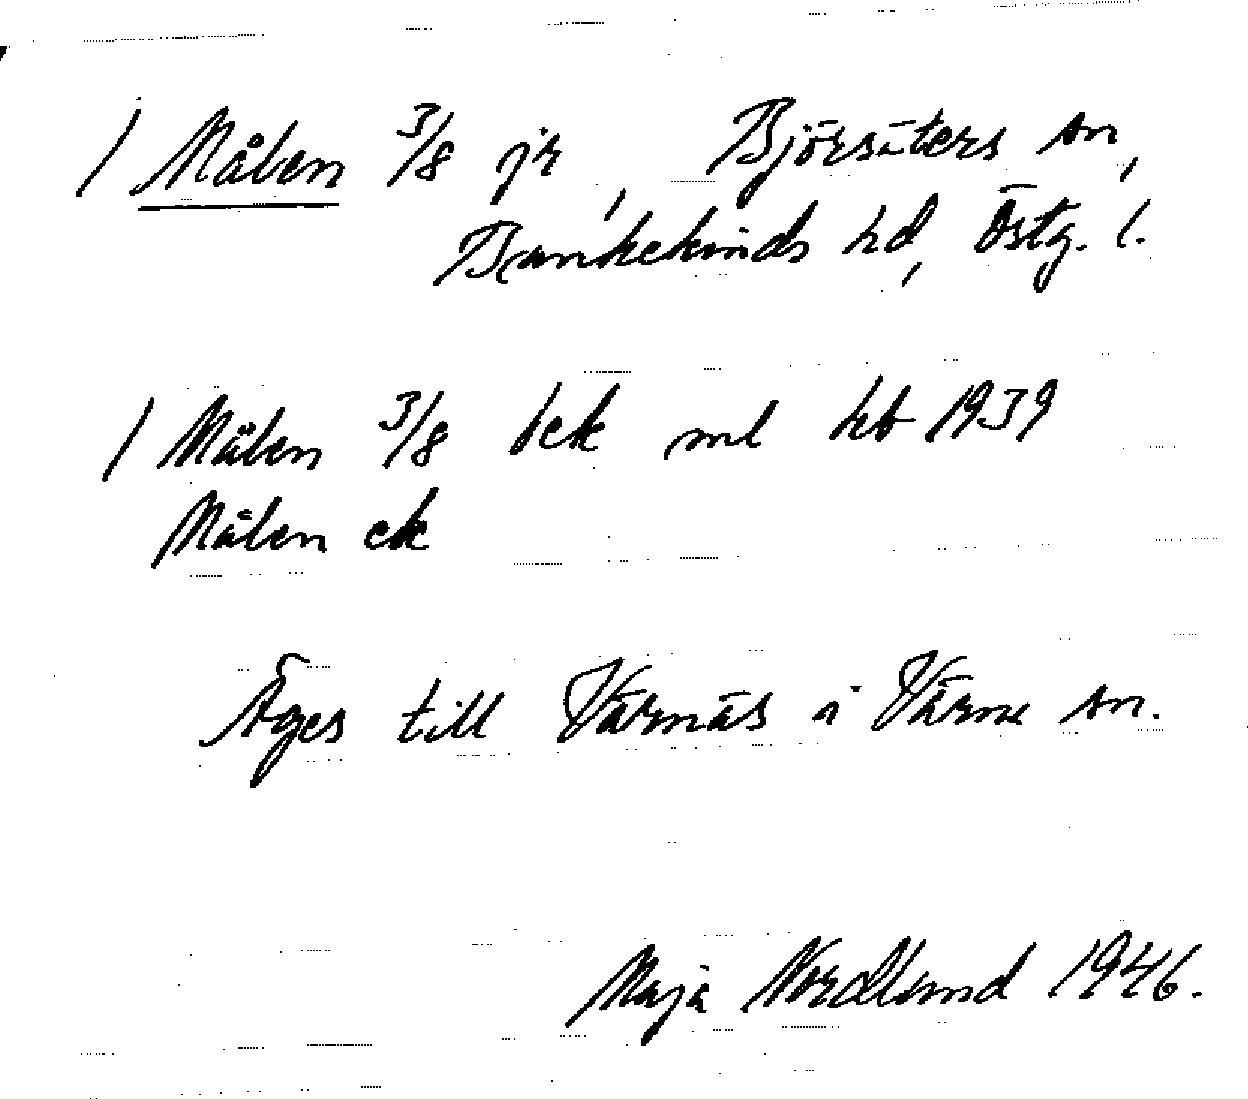 / Målen 3/8 jr, Björsäters sn,
Bankekinds hd, Östg. l.
/ Målen 3/8 tek ml hb 1939
Målen ek
Äges till Värnäs i Värna sn.
Maja Nordlund 1946.